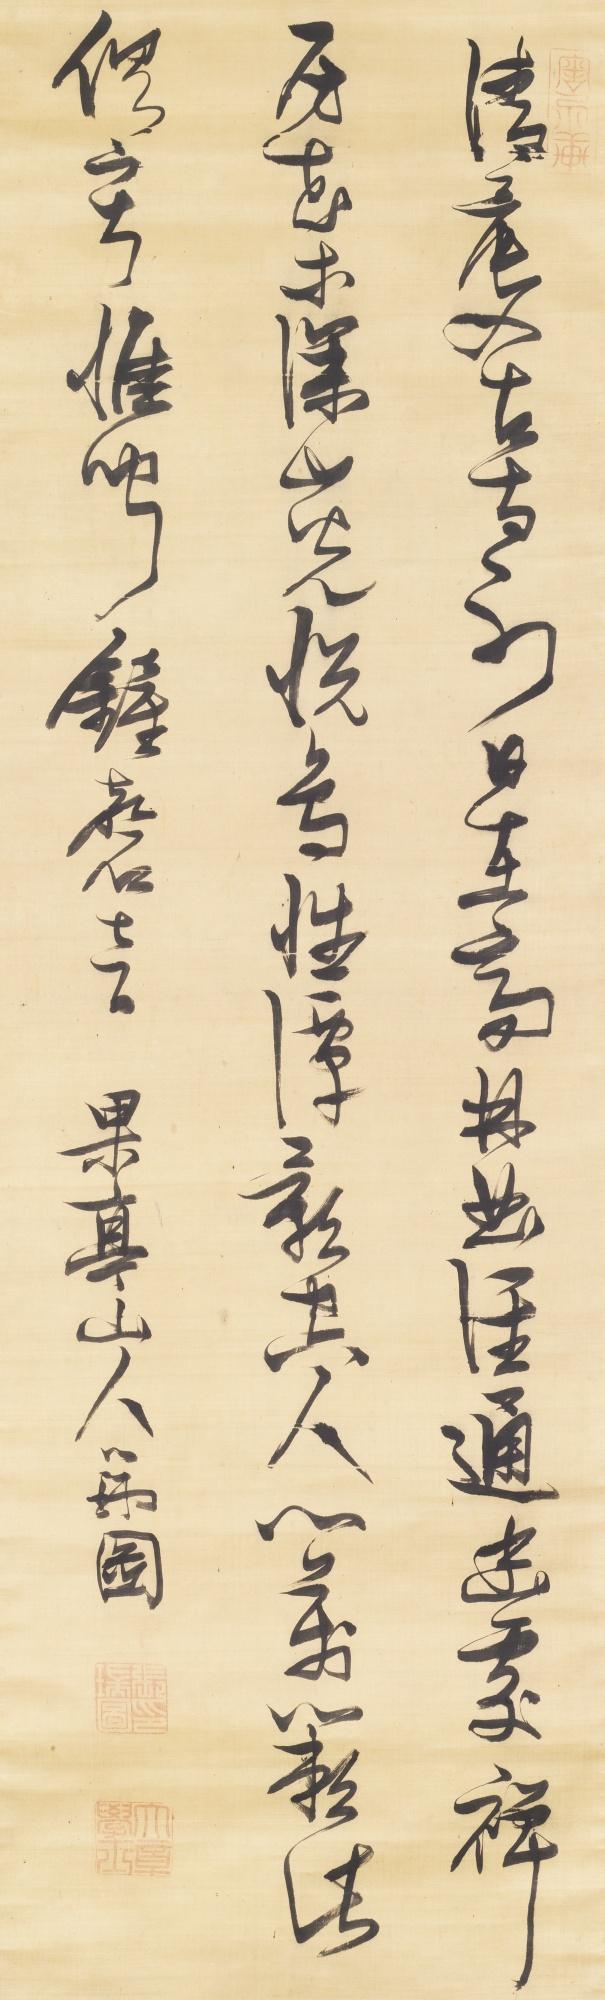 清晨入古寺初日在高林曲徑通幽處禪
房花木深山光悅鳥性潭影空人心萬籟
俱寂惟聞鐘磬音 果亭山人瑞圖